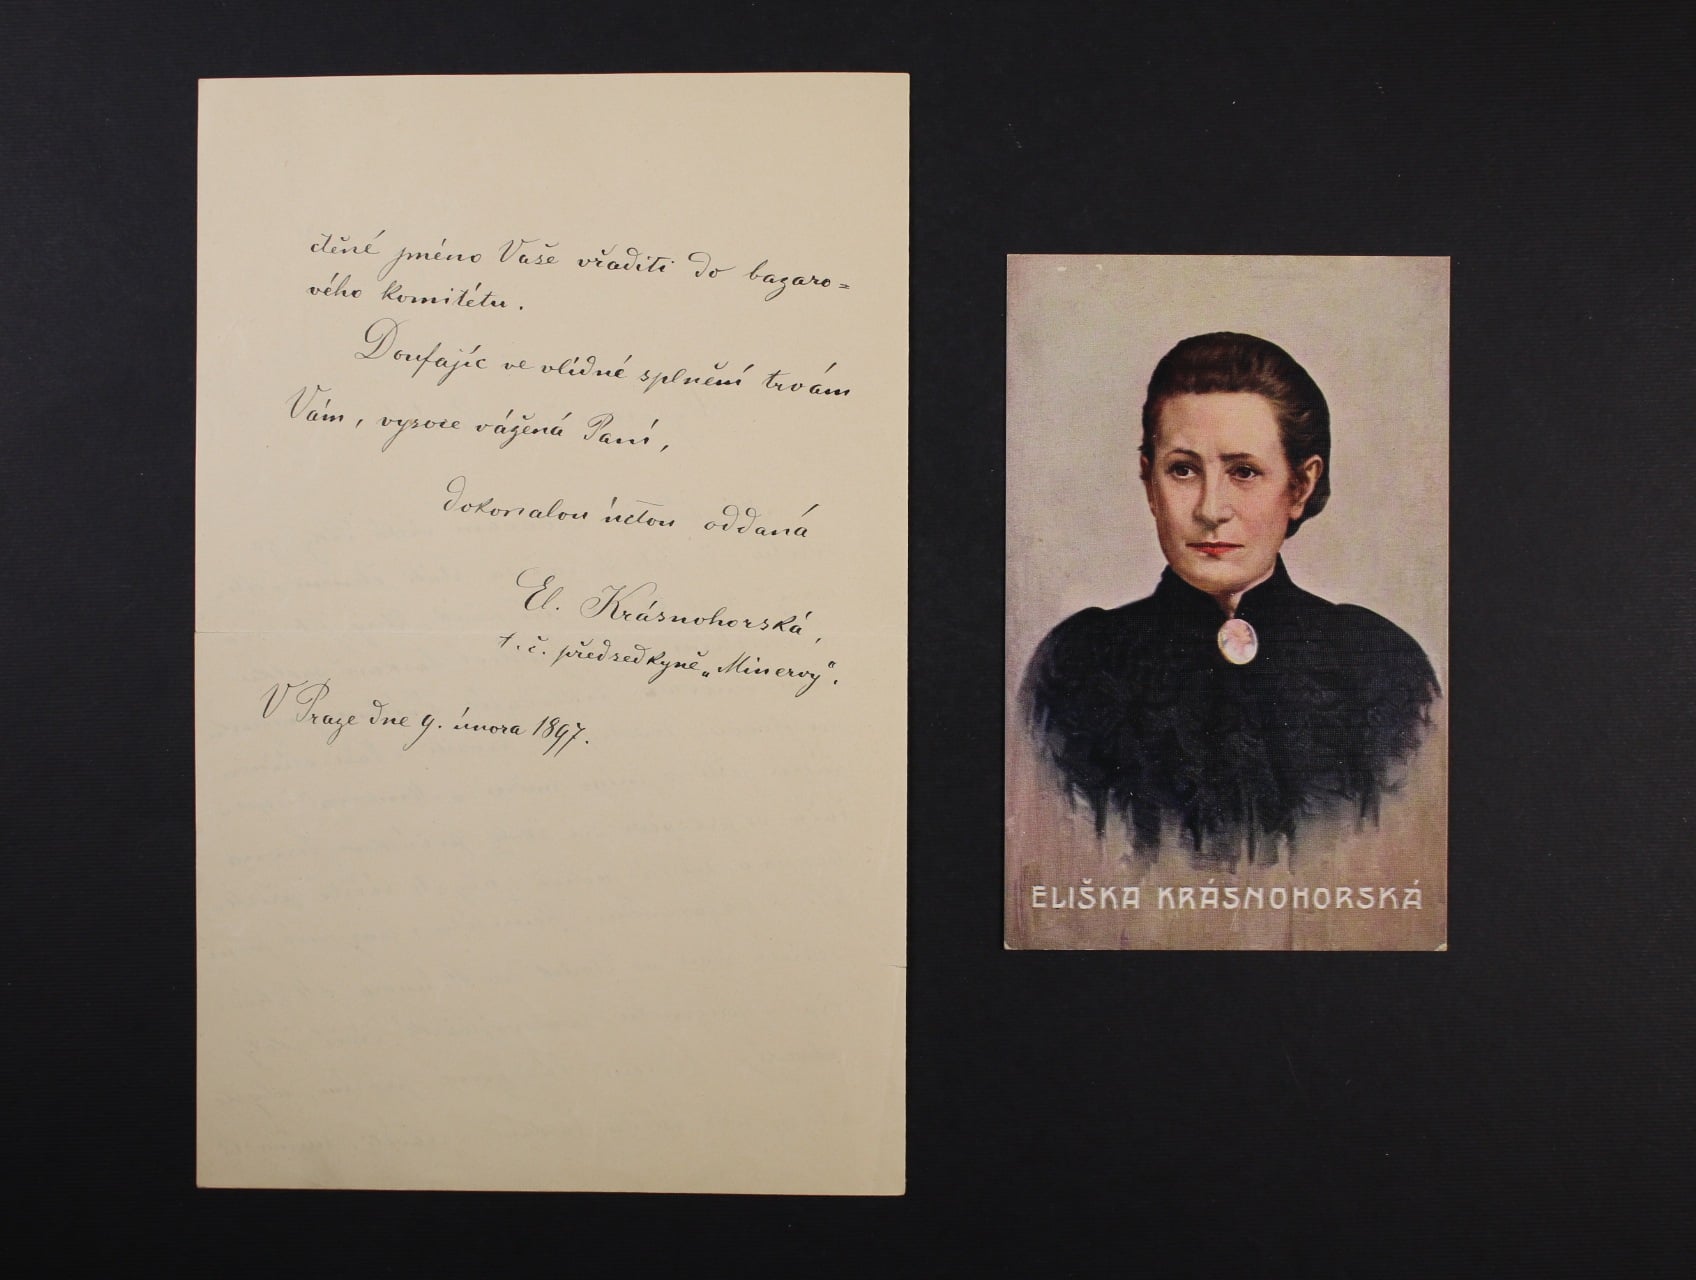 ctěné jméno Vaše vřaditi do bazaro=
vého komitétu.
Doufajíc ve vlídné splnění trvám
Vám, vysoce vážená Paní,
dokonalou úctou oddaná
El. Krásnohorská,
t. č. předsedkyně „Minervy“.
V Praze dne 9. února 1897.
ELIŠKA KRÁSNOHORSKÁ